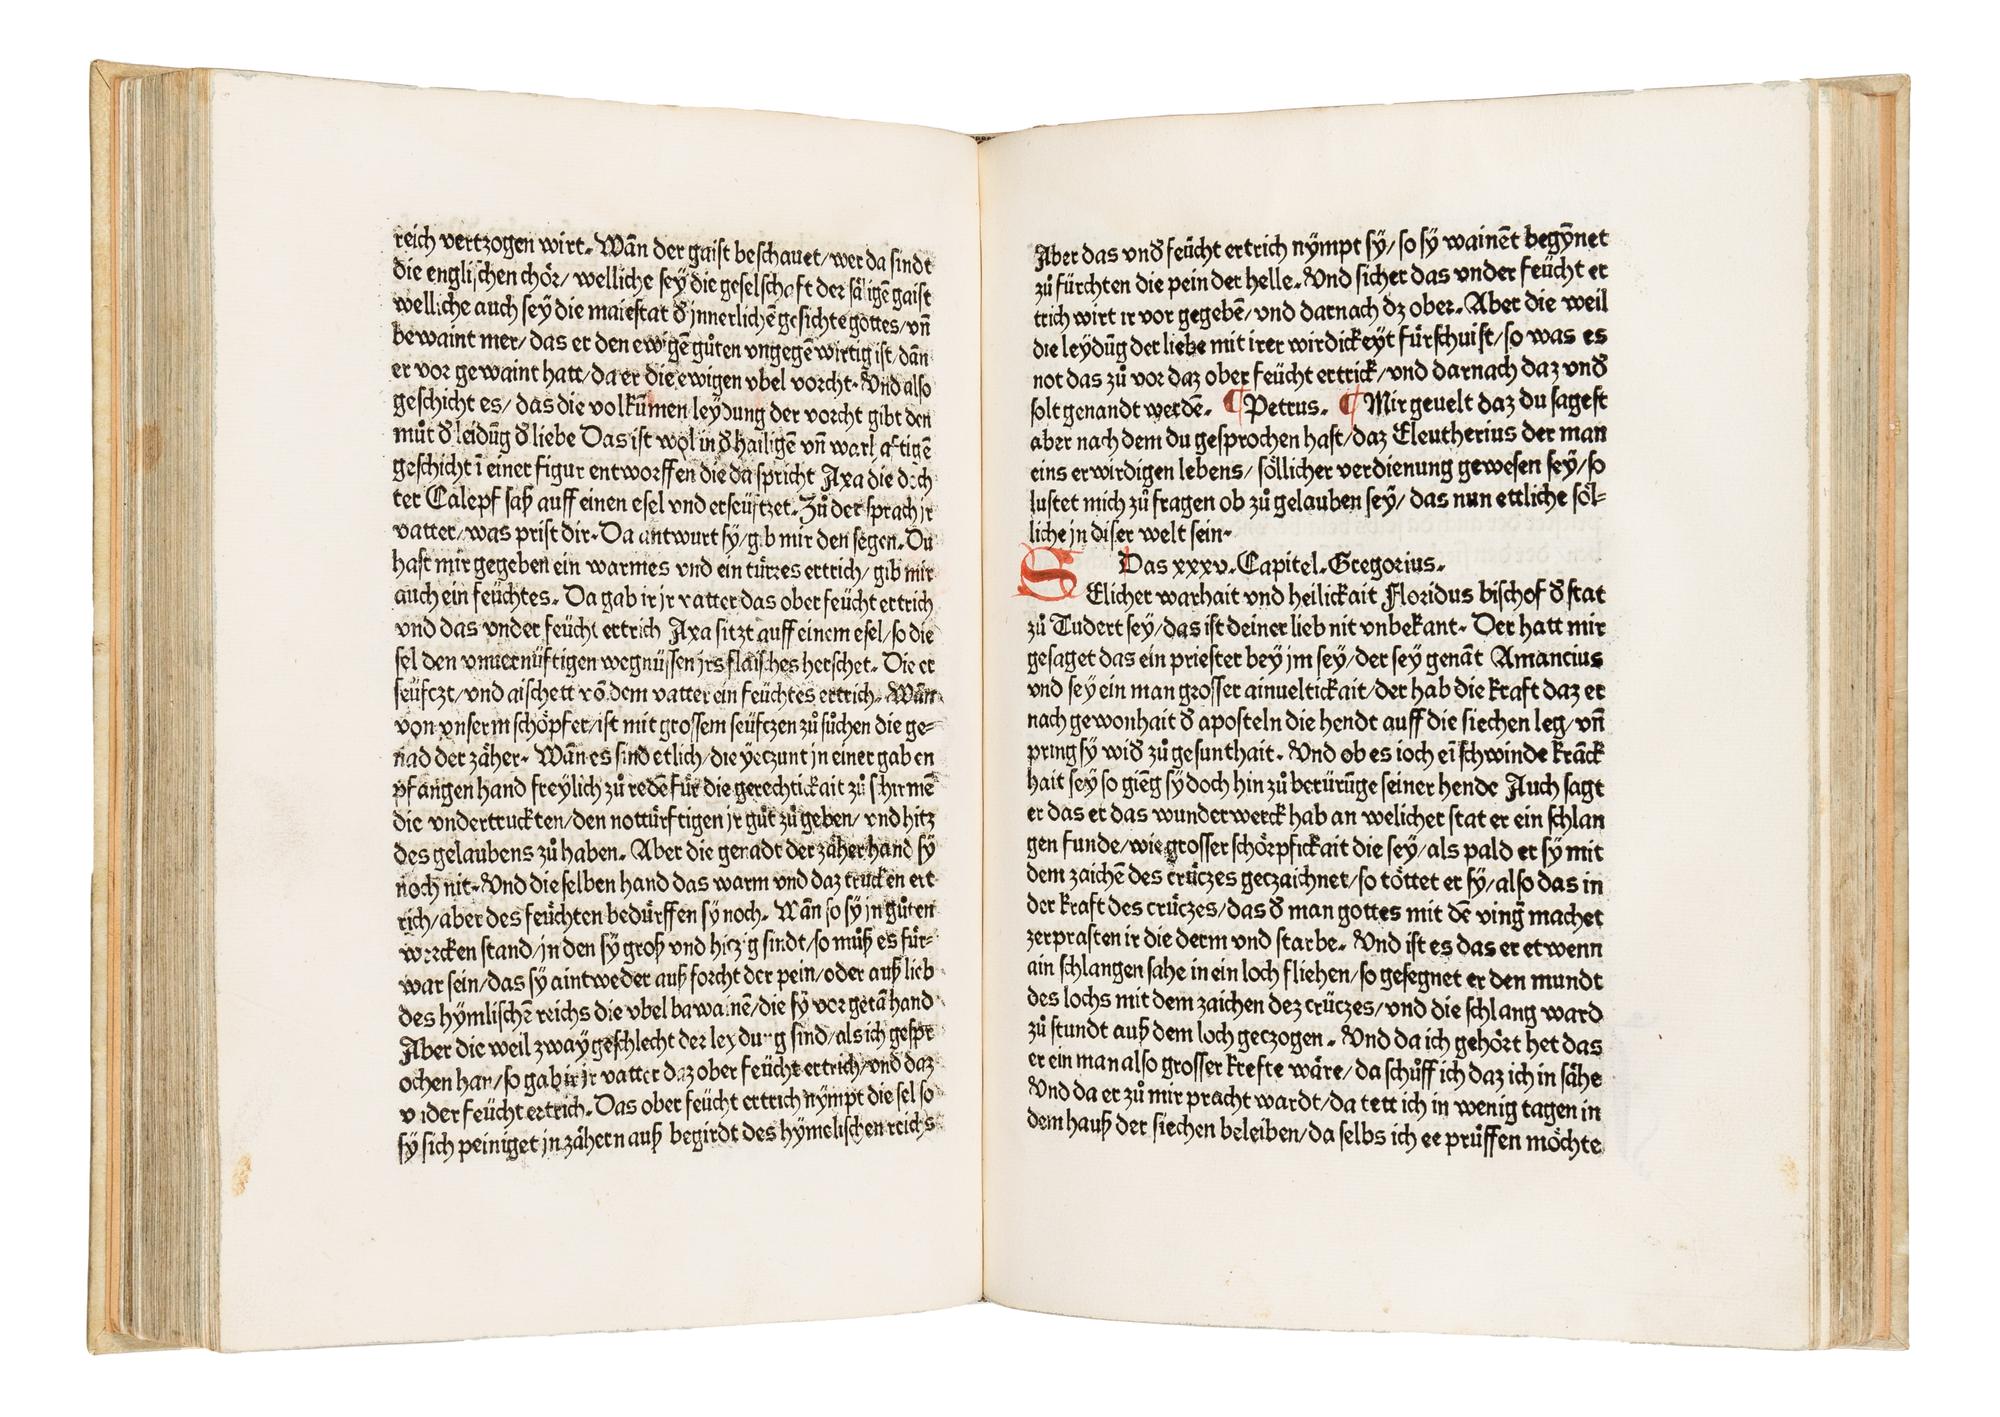 reich vertzogen wirt. Wān der gaist beschauet/wer da sindt
die englischen chör/ welliche sey die geselschaft der säligē gaist
welliche auch sey die maiestat d᷑ jnnerlichē gesichte gottes/vn̄
bewaint mer/das er den ewigē gůten vngegēwirtig ist/dān
er vor gewaint hatt/da er die ewigen vbel vorcht. Vnd also
geschicht es/ das die volkūmen leydung der vorcht gibt den
můt d᷑ leidūg d᷑ liebe Das ist wol in d᷑ hailigē vn̄ warhaftigē
geschicht ī einer figur entworffen die da spricht Axa die doch
ter Calepf saß auff einen esel vnd erseüftzet. Zů der sprach jr
vatter/was prist dir. Da antwurt sy/gib mir den segen. Du
hast mir gegeben ein warmes vnd ein türres ertrich/gib mir
auch ein feüchtes. Da gab ir jr vatter das ober feücht ertrich
vnd das vnder feücht ertrich Axa sitzt auff einem esel/so die
sel den vnuernüftigen wegnüssen jrs flaisches herschet. Die er
seüfczt/vnd aischett vō dem vatter ein feüchtes ertrich. Wān
von vnserm schöpfer/ist mit grossem seüfczen zů sůchen die ge=
nad der zäher. Wān es sind etlich/die yeczunt jn einer gab en
pfangen hand freylich zů redē für die gerechtickait zů schirmē
die vndertruckten/den nottürftigen jr gůt zů geben/vnd hitz
des gelaubens zů haben. Aber die genadt der zäher hand sy
noch nit. Vnd die selben hand das warm vnd daz trucken ert
rich/aber des feüchten bedürffen sy noch. Wān so sy jn gůten
wercken stand/jn den sy groß vnd hiczig sindt/so můß es für=
war sein/das sy aintweder auß forcht der pein/oder auß lieb
des hymlischē reichs die vbel bawainē/die sy vor getā hand
Aber die weil zway geschlecht der leydung sind/als ich gespr
ochen han/so gab ir jr vatter daz ober feücht ertrich/vnd daz
vnder feücht ertrich. Das ober feücht ertrich nympt die sel so
sy sich peiniget jn zähern auß begirdt des hymelischen reichs
Aber das vnd᷑ feücht ertrich nympt sy/so sy wainēt begȳnet
zů fürchten die pein der helle. Vnd sicher das vnder feücht er
trich wirt ir vor gegebē/vnd darnach dz ober. Aber die weil
die leydūg der liebe mit irer wirdickeyt fürschuist/so was es
not das zů vor daz ober feücht ertrick/vnd darnach daz vnd᷑
solt genandt werdē. ¶ Petrus. ¶ Mir geuelt daz du sagest
aber nach dem du gesprochen hast/daz Eleutherius der man
eins erwirdigen lebens/ söllicher verdienung gewesen sey/so
lustet mich zů fragen ob zů gelauben sey/das nun ettliche söl=
liche jn diser welt sein.
Das xxxv. Capitel. Gregorius.
SElicher warhait vnd heilickait Floridus bischof d᷑ stat
zů Tudert sey/das ist deiner lieb nit vnbekant. Der hatt mir
gesaget das ein priester bey jm sey/der sey genāt Amancius
vnd sey ein man grosser ainueltickait/der hab die kraft daz er
nach gewonhait d᷑ aposteln die hendt auff die siechen leg/vn̄
pring sy wid᷑ zů gesunthait. Vnd ob es ioch eī schwinde krāck
hait sey so giēg sy doch hin zů berürūge seiner hende Auch sagt
er das er das wunderwerck hab an welicher stat er ein schlan
gen funde/wie grosser schörpfickait die sey/als pald er sy mit
dem zaichē des crüczes geczaichnet/so töttet er sy/also das in
der kraft des crüczes/das d᷑ man gottes mit dē ving᷑ machet
zerprasten ir die derm vnd starbe. Vnd ist es das er etwenn
ain schlangen sahe in ein loch fliehen/so gesegnet er den mundt
des lochs mit dem zaichen dez crüczes/vnd die schlang ward
zů stundt auß dem loch geczogen. Vnd da ich gehört het das
er ein man also grosser krefte wäre/da schůff ich daz ich in sähe
Vnd da er zů mir pracht wardt/da tett ich in wenig tagen in
dem hauß der siechen beleiben/da selbs ich ee prüffen möchte